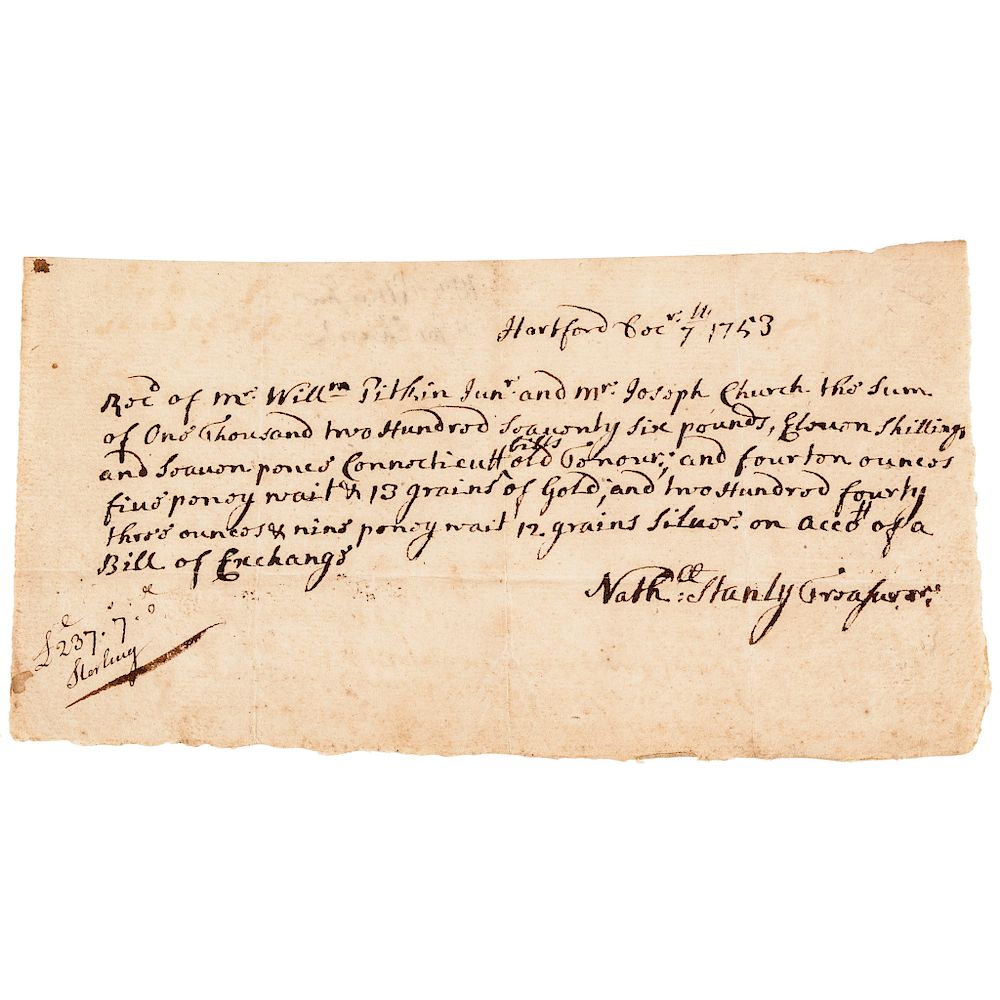 Hartford Decr. 7th 1753
Recd of mr. Willm Pitkin Junr. and mr. Joseph Church the Sum
of One Thousand two Hundred Seaventy six pounds, Eleven Shillings
and Seaven pence Connecticutt bills old Tenour; and fourten ounces
five peney wait & 13 grains of Gold; and two Hundred fourty
three ounces & nine peney wait 12. grains Silver. on acctt of a
Bill of Exchange
Nathll: Stanly Treasurer:
£237.7.0
Sterling